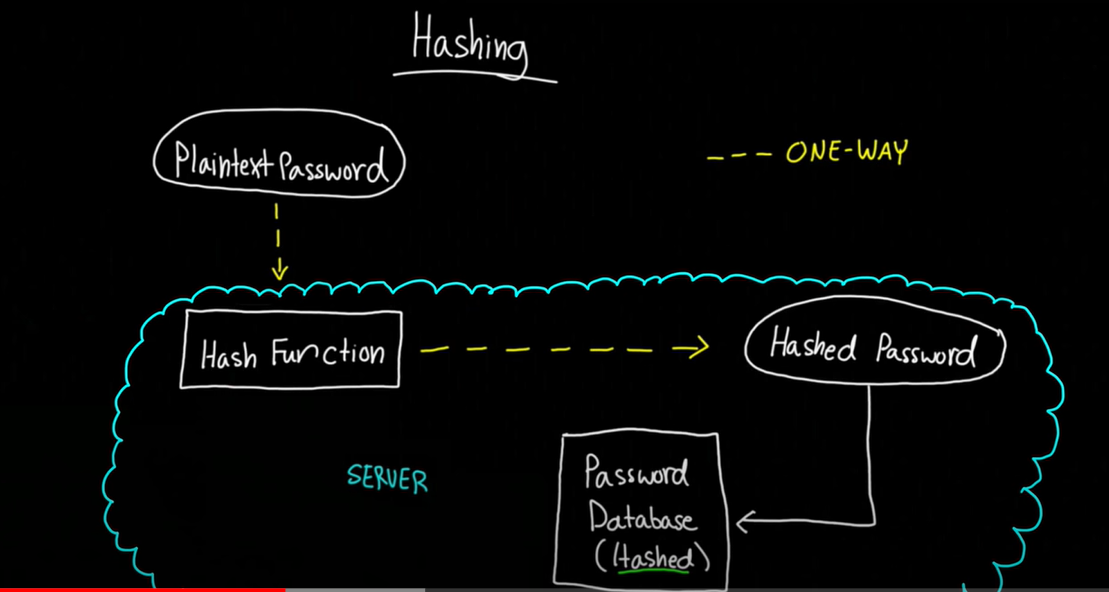 Hashing
Plaintext Password
--- ONE-WAY
Hash Function
Hashed Password
SERVER
Password
Database
(Hashed)